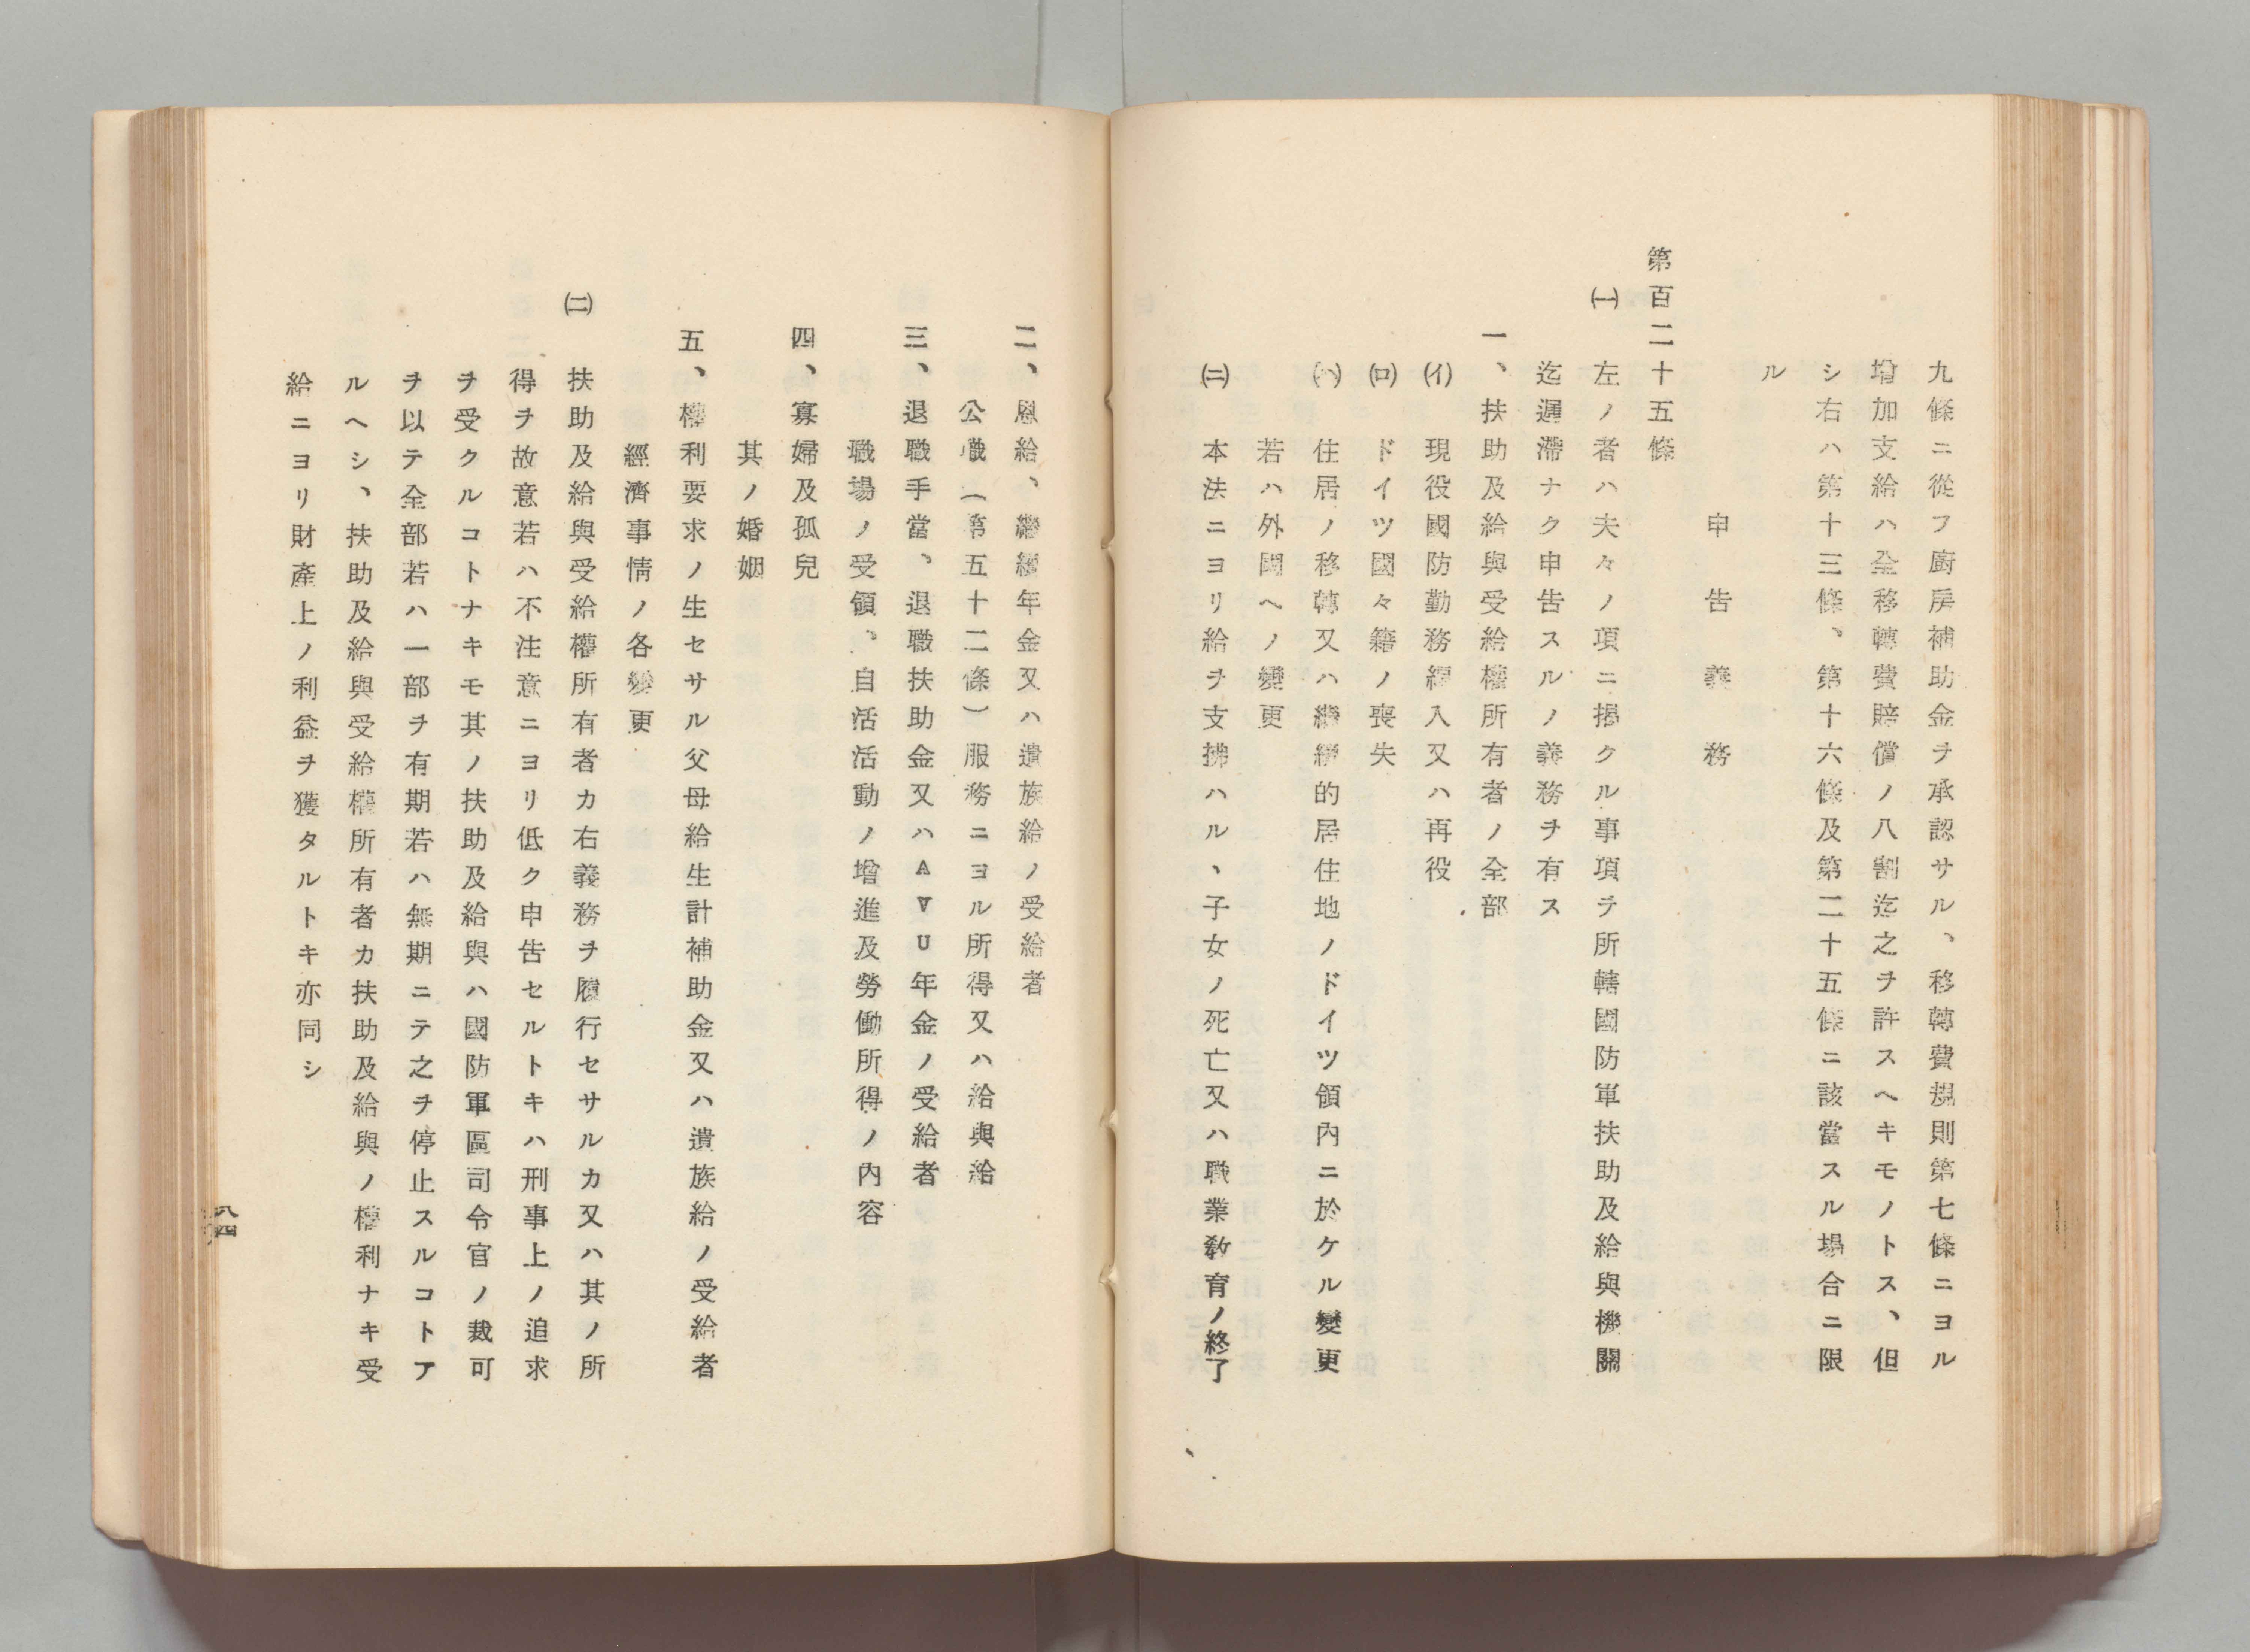 九條ニ從フ廚房補助金ヲ承認サル、移轉費規則第七條ニヨル
增加支給ハ全移轉費賠償ノ八割迄之ヲ許スヘキモノトス、但
シ右ハ第十三條、第十六條及第二十五條ニ該當スル場合ニ限
ル
申告義務
第百二十五條
㈠ 左ノ者ハ夫々ノ項ニ揭クル事項ヲ所轄國防軍扶助及給與機關
迄遲滯ナク申告スルノ義務ヲ有ス
一、扶助及給與受給權所有者ノ全部
(イ) 現役國防勤務編入又ハ再役
(ロ) ドイツ國々籍ノ喪失
(ハ) 住居ノ移轉又ハ繼續的居住地ノドイツ領內ニ於ケル變更
若ハ外國ヘノ變更
(ニ) 本法ニヨリ給ヲ支拂ハル、子女ノ死亡又ハ職業敎育ノ終了
二、恩給、繼續年金又ハ遺族給ノ受給者
公職(第五十二條)服務ニヨル所得又ハ給與給
三、退職手當、退職扶助金又ハAVU年金ノ受給者
職場ノ受領、自活活動ノ增進及勞働所得ノ內容
四、寡婦及孤兒
其ノ婚姻
五、權利要求ノ生セサル父母給生計補助金又ハ遺族給ノ受給者
經濟事情ノ各變更
㈡ 扶助及給與受給權所有者カ右義務ヲ履行セサルカ又ハ其ノ所
得ヲ故意若ハ不注意ニヨリ低ク申告セルトキハ刑事上ノ追求
ヲ受クルコトナキモ其ノ扶助及給與ハ國防軍區司令官ノ裁可
ヲ以テ全部若ハ一部ヲ有期若ハ無期ニテ之ヲ停止スルコトア
ルヘシ、扶助及給與受給權所有者カ扶助及給與ノ權利ナキ受
給ニヨリ財產上ノ利益ヲ獲タルトキ亦同シ
八四